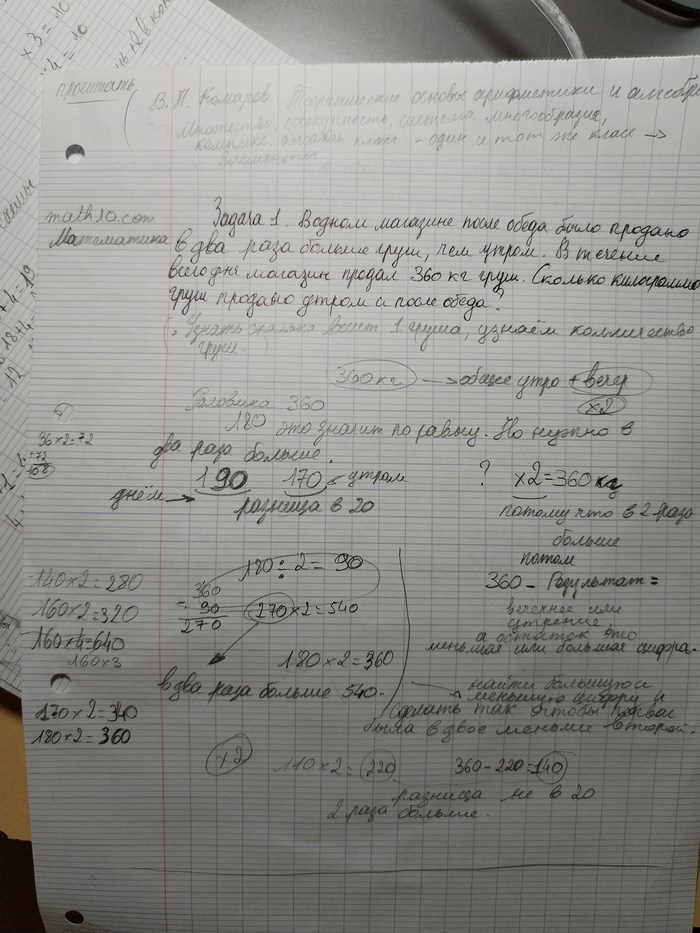 x 3 = 10
x 4 = 10
прочитать
В. Н. Комаров Теоретические основы арифметики и алгебры
Множество, совокупность, система многообразие,
комплекс, ансамбль класс - один и тот же класс →
math10.com
Математика
Задача 1. В одном магазине после обеда было продано
в два раза больше груш, чем утром. В течении
всего дня магазин продал 360 кг груш. Сколько килограммов
груш продано утром и после обеда?
(Узнать сколько весит 1 груша, узнаём колличество
груш.)
360 кг → общее утро + вечер
x2
Половина 360
180 это значит по равну. Но нужно в
два раза больше.
36 x 2 = 72
+72
190 170 ← утром
днём →
разница в 20
? x2 = 360 кг
потому что в 2 раза
больше
потом
180 ÷ 2 = 90
360
- 90
270
270 x 2 = 540
180 x 2 = 360
в два раза больше 540.
140 x 2 = 280
160 x 2 = 320
160 x 4 = 640
160 x 3
170 x 2 = 340
180 x 2 = 360
360 - Результат =
вечернее или
утреннее,
а остаток это
меньшая или большая цифра.
найти большую и
меньшую цифры и
сделать так чтобы первая
была в двое меньше второй.
x2
110 x 2 = 220
360 - 220 = 140
разница не в 20
2 раза больше.